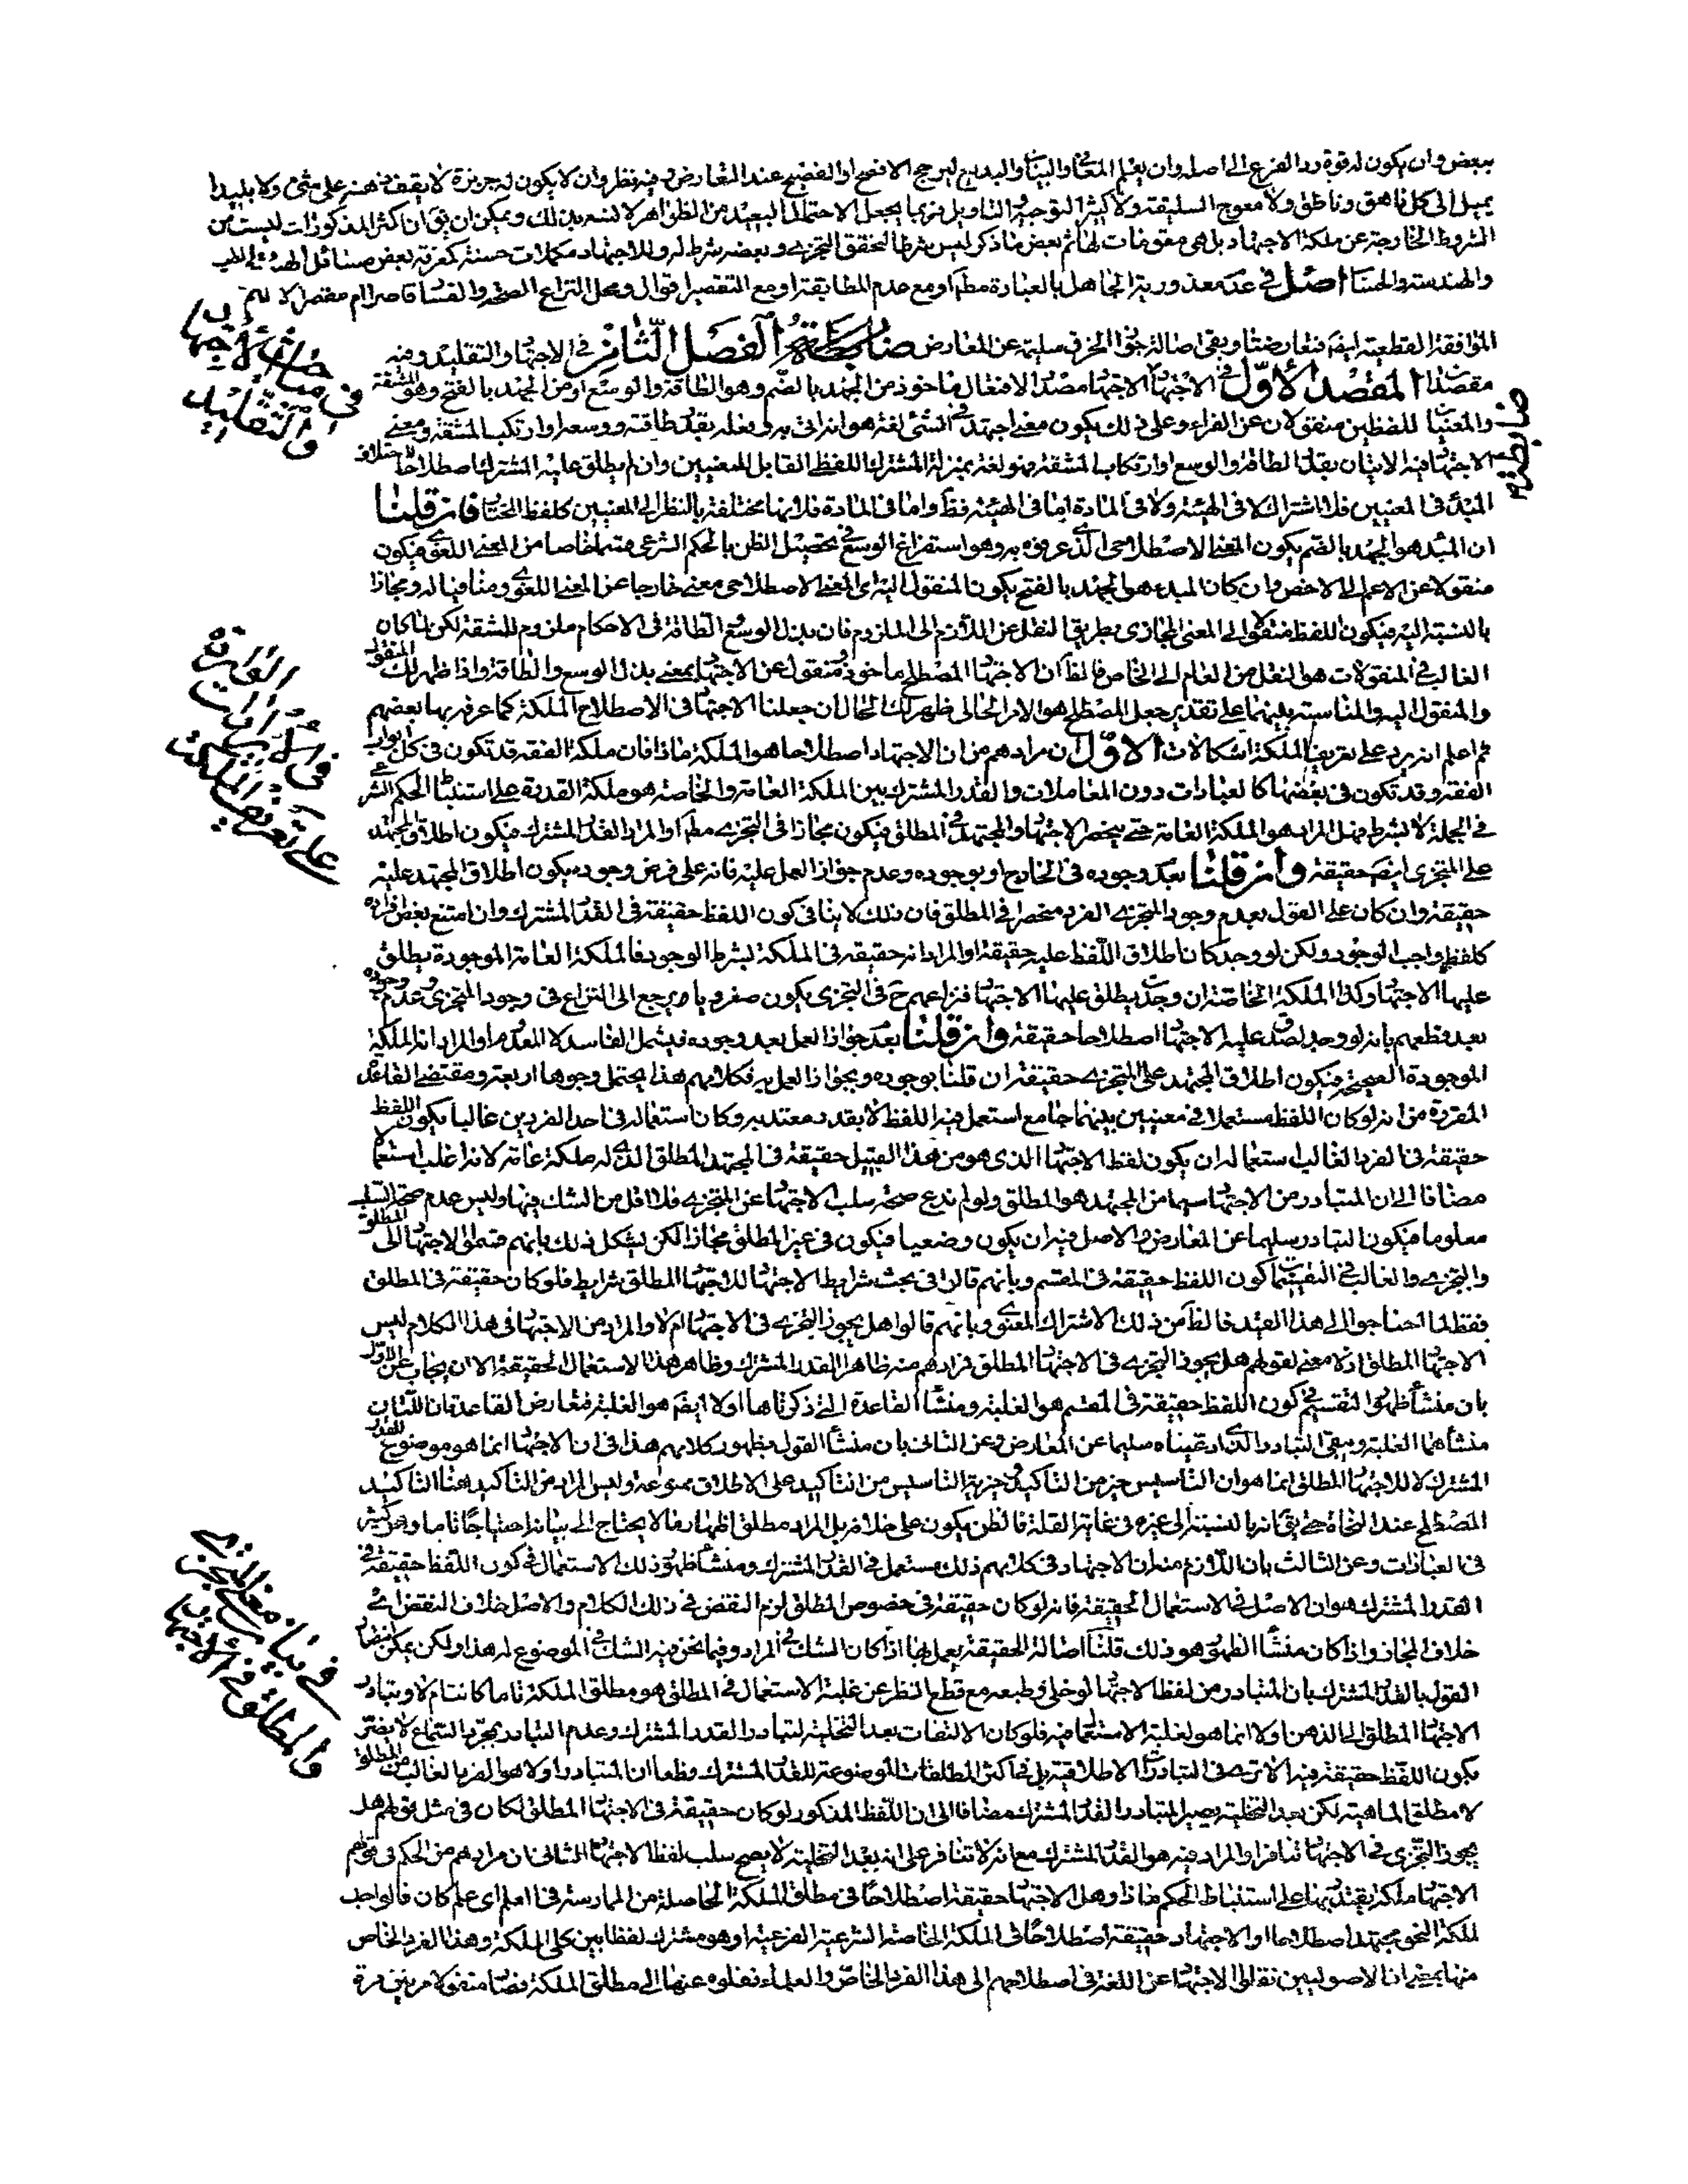 ببعض وان يكون له قوة رد الفرع الى اصله وان يعلم المعانى والبيان والبديع ليرجح الافصح او الفصيح عند التعارض وفيه نظر وان لا يكون له جربزة لا يقف ذهنه على شئ ولا بليدا
يميل الى كل ناهق وناطق ولا معوج السليقة ولا كثير التوجيه والتاويل فربما يجعل الاحتمال البعيد من الظواهر لانسه بذلك ويمكن ان يق ان اكثر المذكورات ليست من
الشروط الخارجة عن ملكة الاجتهاد بل هى مقومات لها ثم بعض ما ذكر ليس شرطا لتحقق التجزى وبعضه شرط له وللاجتهاد مكملات حسنة كمعرفة بعض مسائل الهيئة والطب
والهندسة والحساب اصل فى عدم معذورية الجاهل بالعبادة مطلقا او مع عدم المطابقة او مع التقصير اقوال ومحل النزاع الصحة والفساد قاصرا ام مقصرا
الموافقة القطعية ايضا فتعارضتا وبقى اصالة سليمة عن المعارض ضابطة الفصل الثانى فى الاجتهاد والتقليد وفيه
مقصدان المقصد الاول فى الاجتهاد الاجتهاد مصدر الافتعال ماخوذ من الجهد بالضم وهو الطاقة والوسع او من الجهد بالفتح وهو المشقة
والمعنيان للفظين منقولان عن الفراء وعلى ذلك يكون معنى اجتهد فى الشئ لغة هو انه اتى به وفعله بقدر طاقته ووسعه او ارتكب المشقة ومعنى
الاجتهاد فيه الاتيان بقدر الطاقة والوسع او ارتكاب المشقة فهو لغة بمنزلة المشترك اللفظ القابل للمعنيين وان لم يطلق عليه المشترك اصطلاحا لاختلاف
المبدء فى المعنيين فلا اشتراك لا فى الهيئة ولا فى المادة اما فى الهيئة فظ واما فى المادة فلانها مختلفة بالنظر الى المعنيين كلفظ المختار فان قلنا
ان المبدء هو الجهد بالضم يكون المعنى الاصطلاحى الذى عرفوه به وهو استفراغ الوسع فى تحصيل الظن بالحكم الشرعى قسما خاصا من المعنى اللغوى فيكون
منقولا عن الاعم الى الاخص وان كان المبدء هو الجهد بالفتح يكون المنقول اليه اى المعنى الاصطلاحى معنى خارجا عن المعنى اللغوى ومنافيا له ومجازا
بالنسبة اليه فيكون اللفظ منقولا الى المعنى المجازى بطريق النقل عن اللازم الى الملزوم فان بذل الوسع والطاقة فى الاحكام ملزوم للمشقة لكن لما كان
الغالب فى المنقولات هو النقل من العام الى الخاص فالظ ان الاجتهاد المصطلح ماخوذ ومنقول عن الاجتهاد بمعنى بذل الوسع والطاقة واذا ظهر لك المنقول
والمنقول اليه والمناسبة بينهما على تقدير جعل المصطلح هو الامر الحالى ظهر لك الحال ان جعلنا الاجتهاد فى الاصطلاح الملكة كما عرفه بها بعضهم
ثم اعلم انه يرد على تعريف الملكة اشكالات الاول ان مرادهم من ان الاجتهاد اصطلاحا هو الملكة ماذا فان ملكة الفقه قد تكون فى كل ابواب
الفقه وقد تكون فى بعضها كالعبادات دون المعاملات والقدر المشترك بين الملكة العامة والخاصة هو ملكة القدرة على استنباط الحكم الشرعى
فى الجملة لا بشرط فهل المراد هو الملكة العامة حتى ينحصر الاجتهاد والمجتهد فى المطلق فيكون مجازا فى التجزى مطلقا او المراد القدر المشترك فيكون اطلاق المجتهد
على المتجزى ايضا حقيقة وان قلنا بعدم وجوده فى الخارج او بوجوده وعدم جواز العمل عليه فانه على فرض وجوده يكون اطلاق المجتهد عليه
حقيقة وان كان على القول بعدم وجود المتجزى الفرد منحصرا فى المطلق فان ذلك لا ينافى كون اللفظ حقيقة فى القدر المشترك وان امتنع بعض افراده
كلفظ واجب الوجود ولكن لو وجد كان اطلاق اللفظ عليه حقيقة او المراد انه حقيقة فى الملكة بشرط الوجود فالملكة العامة الموجودة يطلق
عليها الاجتهاد وكذا الملكة الخاصة ان وجدت يطلق عليها الاجتهاد فنزاعهم ح فى التجزى يكون صغرويا ويرجع الى النزاع فى وجود المتجزى وعدم وجوده
بعد قطعهم بانه لو وجد لصدق عليه الاجتهاد اصطلاحا حقيقة وان قلنا بعدم جواز العمل بعد وجوده فيشمل الفاسد لا المعدوم او المراد ان الملكة
الموجودة الصحيحة فيكون اطلاق المجتهد على المتجزى حقيقة ان قلنا بوجوده وبجواز العمل به فكلامهم هذا يحتمل وجوها اربعة ومقتضى القاعدة
المقررة من انه لو كان اللفظ مستعملا فى معنيين بينهما جامع استعمل فيه اللفظ لا بقدر معتد به وكان استعماله فى احد الفردين غالبا يكون اللفظ
حقيقة فى الفرد الغالب استعماله ان يكون لفظ الاجتهاد الذى هو من هذا القبيل حقيقة فى المجتهد المطلق الذى له ملكة عامة لانه اغلب استعمالا
مضافا الى ان المتبادر من الاجتهاد سيما من المجتهد هو المطلق ولو لم ندع صحة سلب الاجتهاد عن المتجزى فلا اقل من الشك فيها وليس عدم صحة السلب
معلوما فيكون التبادر سليما عن المعارض والاصل فيه ان يكون وضعيا فيكون فى غير المطلق مجازا لكن يشكل ذلك بانهم قسموا الاجتهاد الى المطلق
والتجزى والغالب فى التقسيمات كون اللفظ حقيقة فى المقسم وبانهم قالوا فى بحث شرايط الاجتهاد للاجتهاد المطلق شرايط فلو كان حقيقة فى المطلق
فقط لما احتاجوا الى هذا القيد فالظ من ذلك الاشتراك المعنوى وبانهم قالوا هل يجوز التجزى فى الاجتهاد ام لا والمراد من الاجتهاد فى هذا الكلام ليس
الاجتهاد المطلق اذ لا معنى لقولهم هل يجوز التجزى فى الاجتهاد المطلق فمرادهم منه ظاهرا القدر المشترك وظاهر هذا الاستعمال الحقيقة الا ان يجاب عن الاول
بان منشأ ظهور التقسيم فى كون اللفظ حقيقة فى المقسم هو الغلبة ومنشأ القاعدة التى ذكرناها اولا ايضا هو الغلبة فتعارض القاعدتان اللتان
منشأهما الغلبة وبقى التبادر الذى ادعيناه سليما عن المعارض وعن الثانى بان منشأ القول بظهور كلامهم هذا فى ان الاجتهاد انما هو موضوع للقدر
المشترك لا للاجتهاد المطلق انما هو ان التاسيس خير من التاكيد وخيرية التاسيس من التاكيد على الاطلاق ممنوعة وليس المراد من التاكيد هنا التاكيد
المصطلح عند النحاة حتى يق انه بالنسبة الى غيره فى غاية القلة فالظن يكون على خلافه بل المراد مطلق اظهار ما لا يحتاج الى بيانه احتياجا تاما وهو كثير
فى العبارات وعن الثالث بان اللازم منه ان الاجتهاد فى كلامهم ذلك مستعمل فى القدر المشترك ومنشأ ظهور ذلك الاستعمال فى كون اللفظ حقيقة فى
القدر المشترك هو ان الاصل فى الاستعمال الحقيقة فانه لو كان حقيقة فى خصوص المطلق لزم النقض فى ذلك الكلام والاصل خلاف النقض اى
خلاف المجاز واذا كان منشأ الظهور هو ذلك قلنا اصالة الحقيقة يعمل بها اذا كان الشك فى المراد وفيما نحن فيه الشك فى الموضوع له هذا ولكن يمكن
القول بالقدر المشترك بان المتبادر من لفظ الاجتهاد لو خلى وطبعه مع قطع النظر عن غلبة الاستعمال فى المطلق هو مطلق الملكة تاما كانت ام لا وتبادر
الاجتهاد المطلق الى الذهن اولا انما هو لغلبة الاستعمال فيه فلو كان الالتفات بعد التخلية لتبادر القدر المشترك وعدم التبادر بمجرد السماع لا يضر
بكون اللفظ حقيقة فيه الا ترى فى التبادرات الاطلاقية بل فى اكثر المطلقات الموضوعة للقدر المشترك وظ ان المتبادر اولا هو الفرد الغالب من المطلق
لا مطلق الماهية لكن بعد التخلية يصير المتبادر القدر المشترك مضافا الى ان اللفظ المذكور لو كان حقيقة فى الاجتهاد المطلق لكان فى مثل قولهم هل
يجوز التجزى فى الاجتهاد تنافر اذ المراد فيه هو القدر المشترك مع انه لا تنافر على انه بعد التخلية لا يصح سلب لفظ الاجتهاد الثانى ان مرادهم من الحكم فى قولهم
الاجتهاد ملكة يقتدر بها على استنباط الحكم ماذا وهل الاجتهاد حقيقة اصطلاحا فى مطلق الملكة الحاصلة من الممارسة فى اى علم كان فالواجد
لملكة النحو مجتهد اصطلاحا او الاجتهاد حقيقة اصطلاحا فى الملكة الخاصة الشرعية الفرعية او هو مشترك لفظا بين كلى الملكة وهذا الفرد الخاص
منها بمعنى ان الاصوليين نقلوا الاجتهاد عن اللغة فى اصطلاحهم الى هذا الفرد الخاص والعلماء نقلوه عنها الى مطلق الملكة فصار منقولا مرتين مرة
ضابطة
فى مباحث الاجتهاد
والتقليد
على تعريف الملكة
فى بيان معنى التجزى
والمطلق فى الاجتهاد